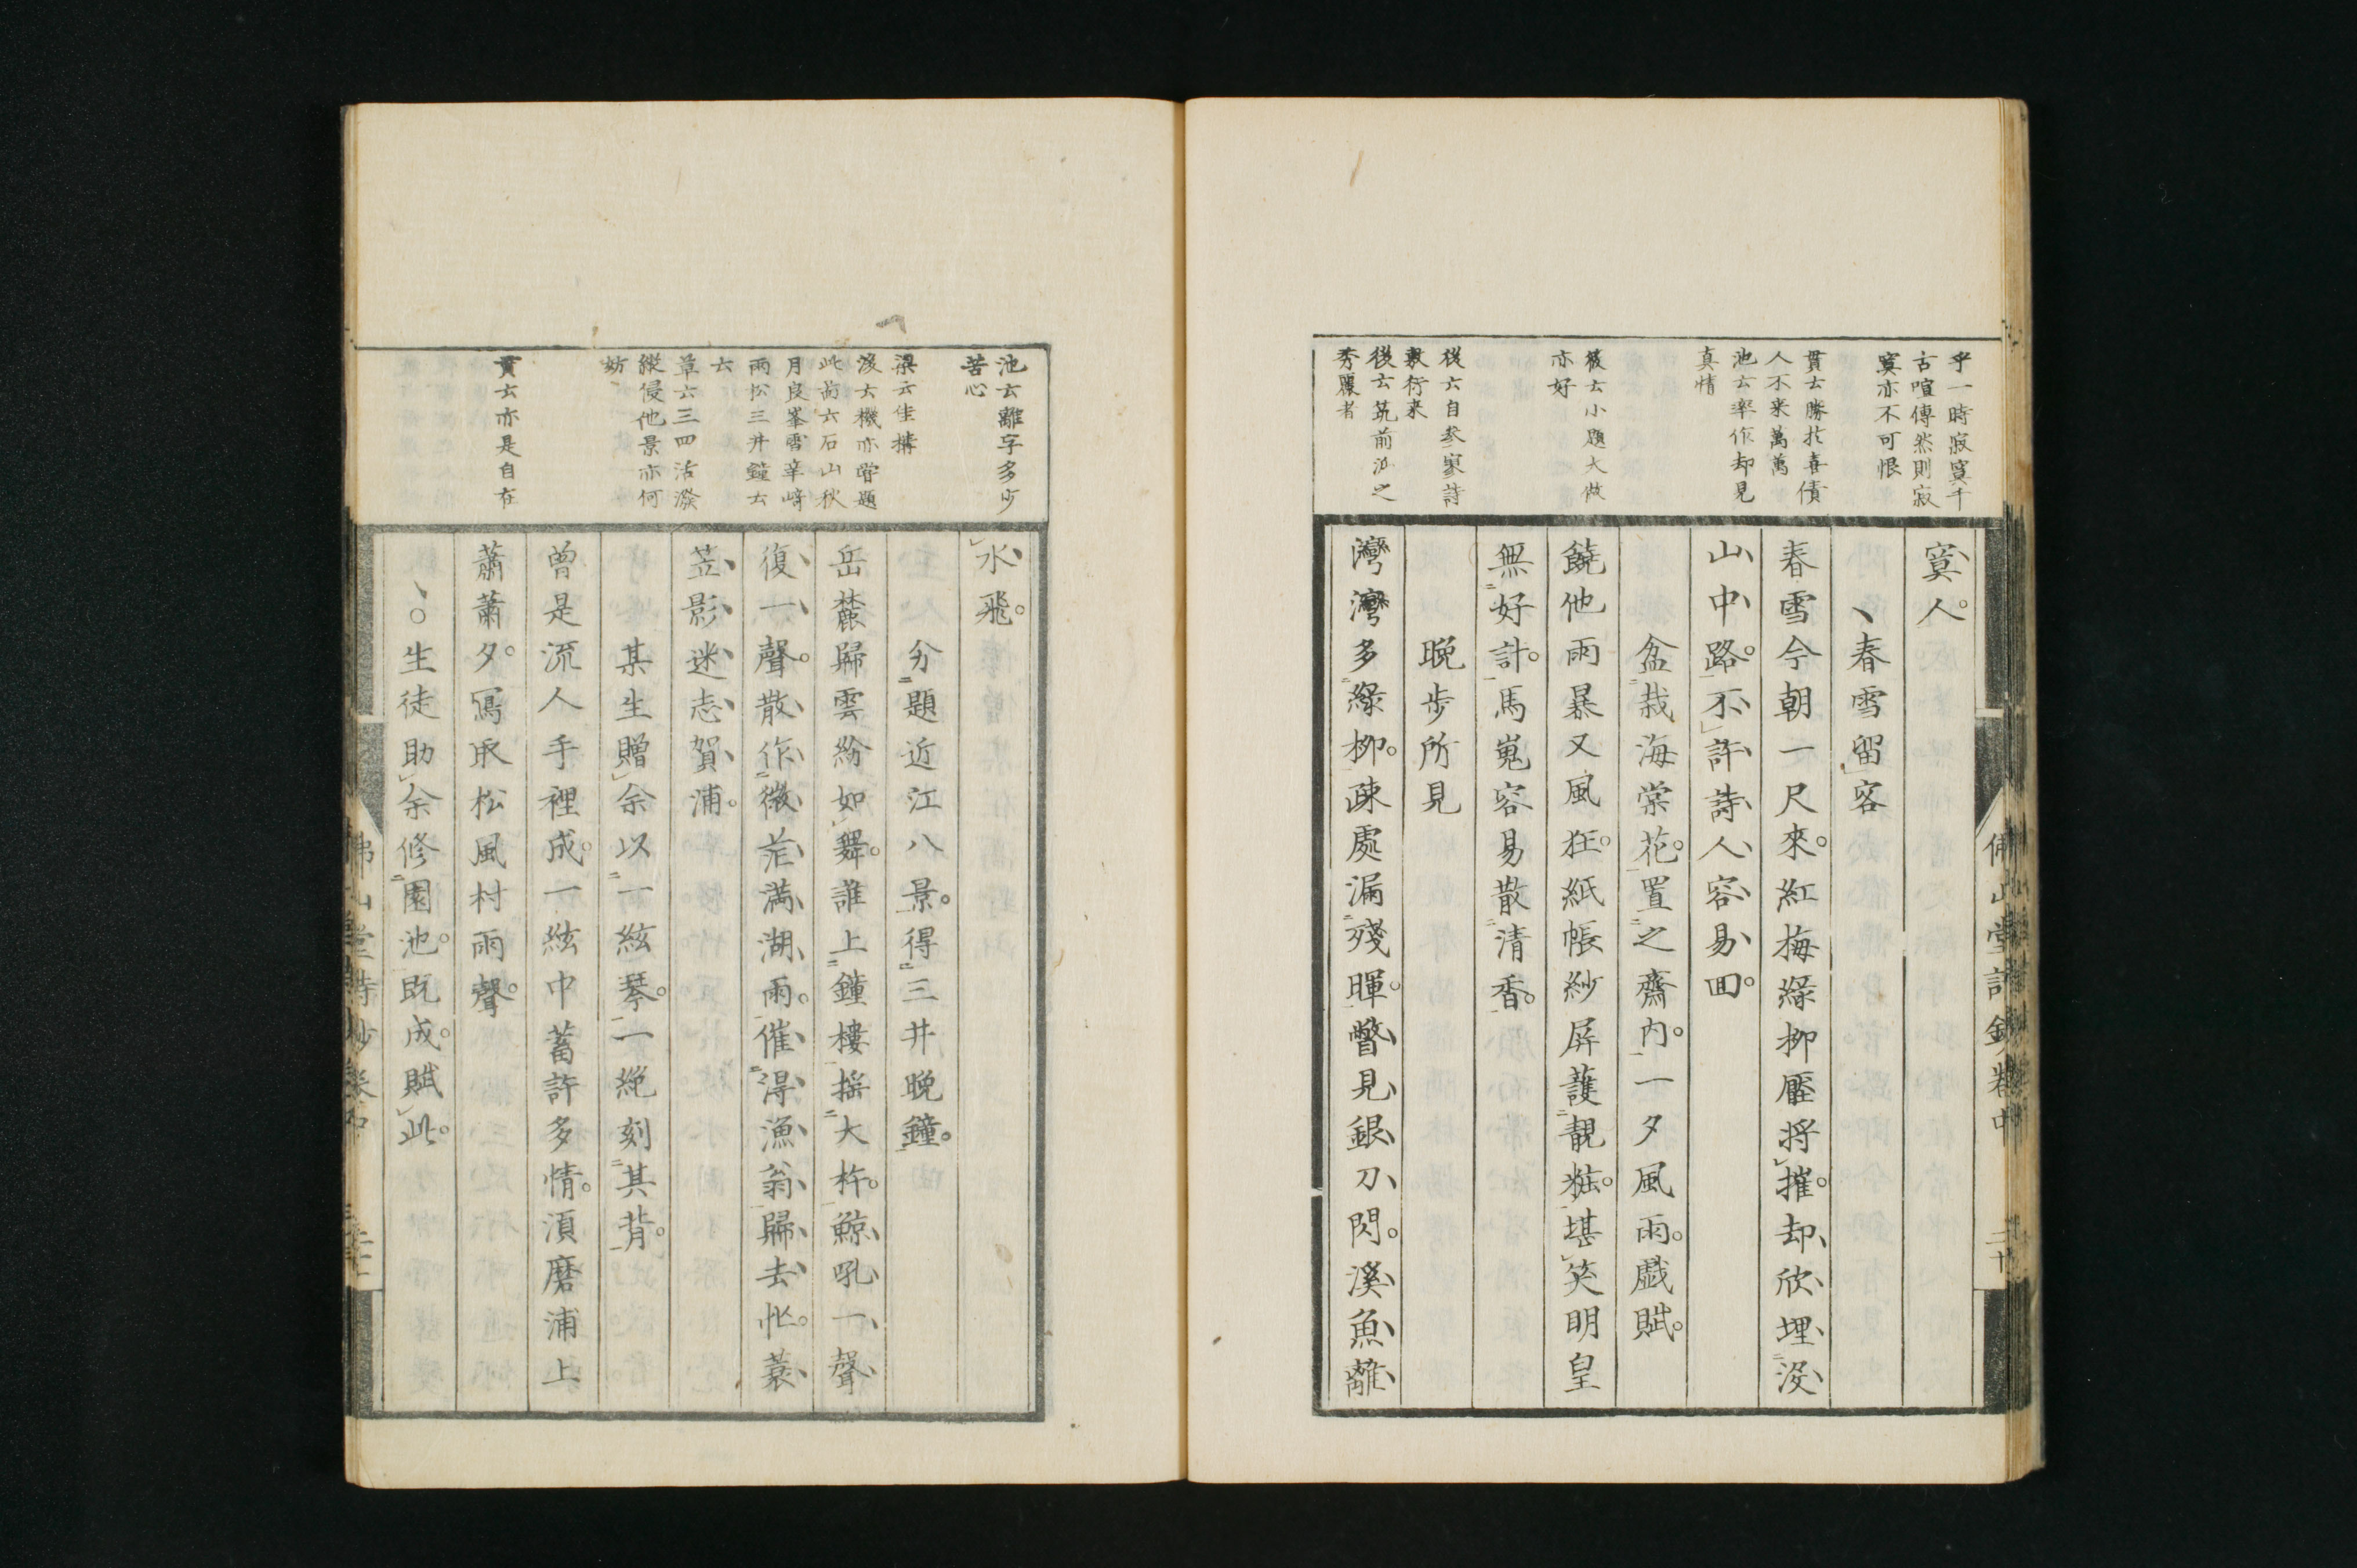 乎一時寂寞千
古喧傳然則寂
寞亦不可恨
貫云勝於喜債
人不来萬萬
池云率作却見
真情
後云小題大做
亦好
後云自参寥詩
敷衍来
後云筑前江之
秀麗者
寞人。
春雪留客
春雪今朝一尺來。紅梅緑柳壓将摧。却欣埋没
山中路。不許詩人容易回。
盆栽海棠花。置之齋内。一夕風雨。戯賦。
饒他雨暴又風狂。紙帳紗屏護靚粧。堪笑明皇
無好計。馬嵬容易散清香。
晩歩所見
灣灣多緑柳。疎處漏殘暉。瞥見銀刀閃。溪魚離
佛山堂詩鈔卷中
二十
池云離字多少
苦心
梁云佳構
後云機亦嘗題
此
云石山秋
月良峯雪辛崎
雨松三井鐘云
云
草云三四活潑
縦侵他景亦何
妨
貫云亦是自在
水飛。
分題近江八景。得三井晩鐘。
岳麓歸雲紛如舞。誰上鐘樓揺大杵。鯨吼一聲
復一聲。散作微茫満湖雨。催得漁翁歸去忙。蓑
笠影迷志賀浦。
某生贈余以一絃琴。一絶刻其背。
曽是流人手裡成。一絃中蓄許多情。須磨浦上
蕭蕭夕。寫取松風村雨聲。
○生徒助余修園池。既成。賦此。